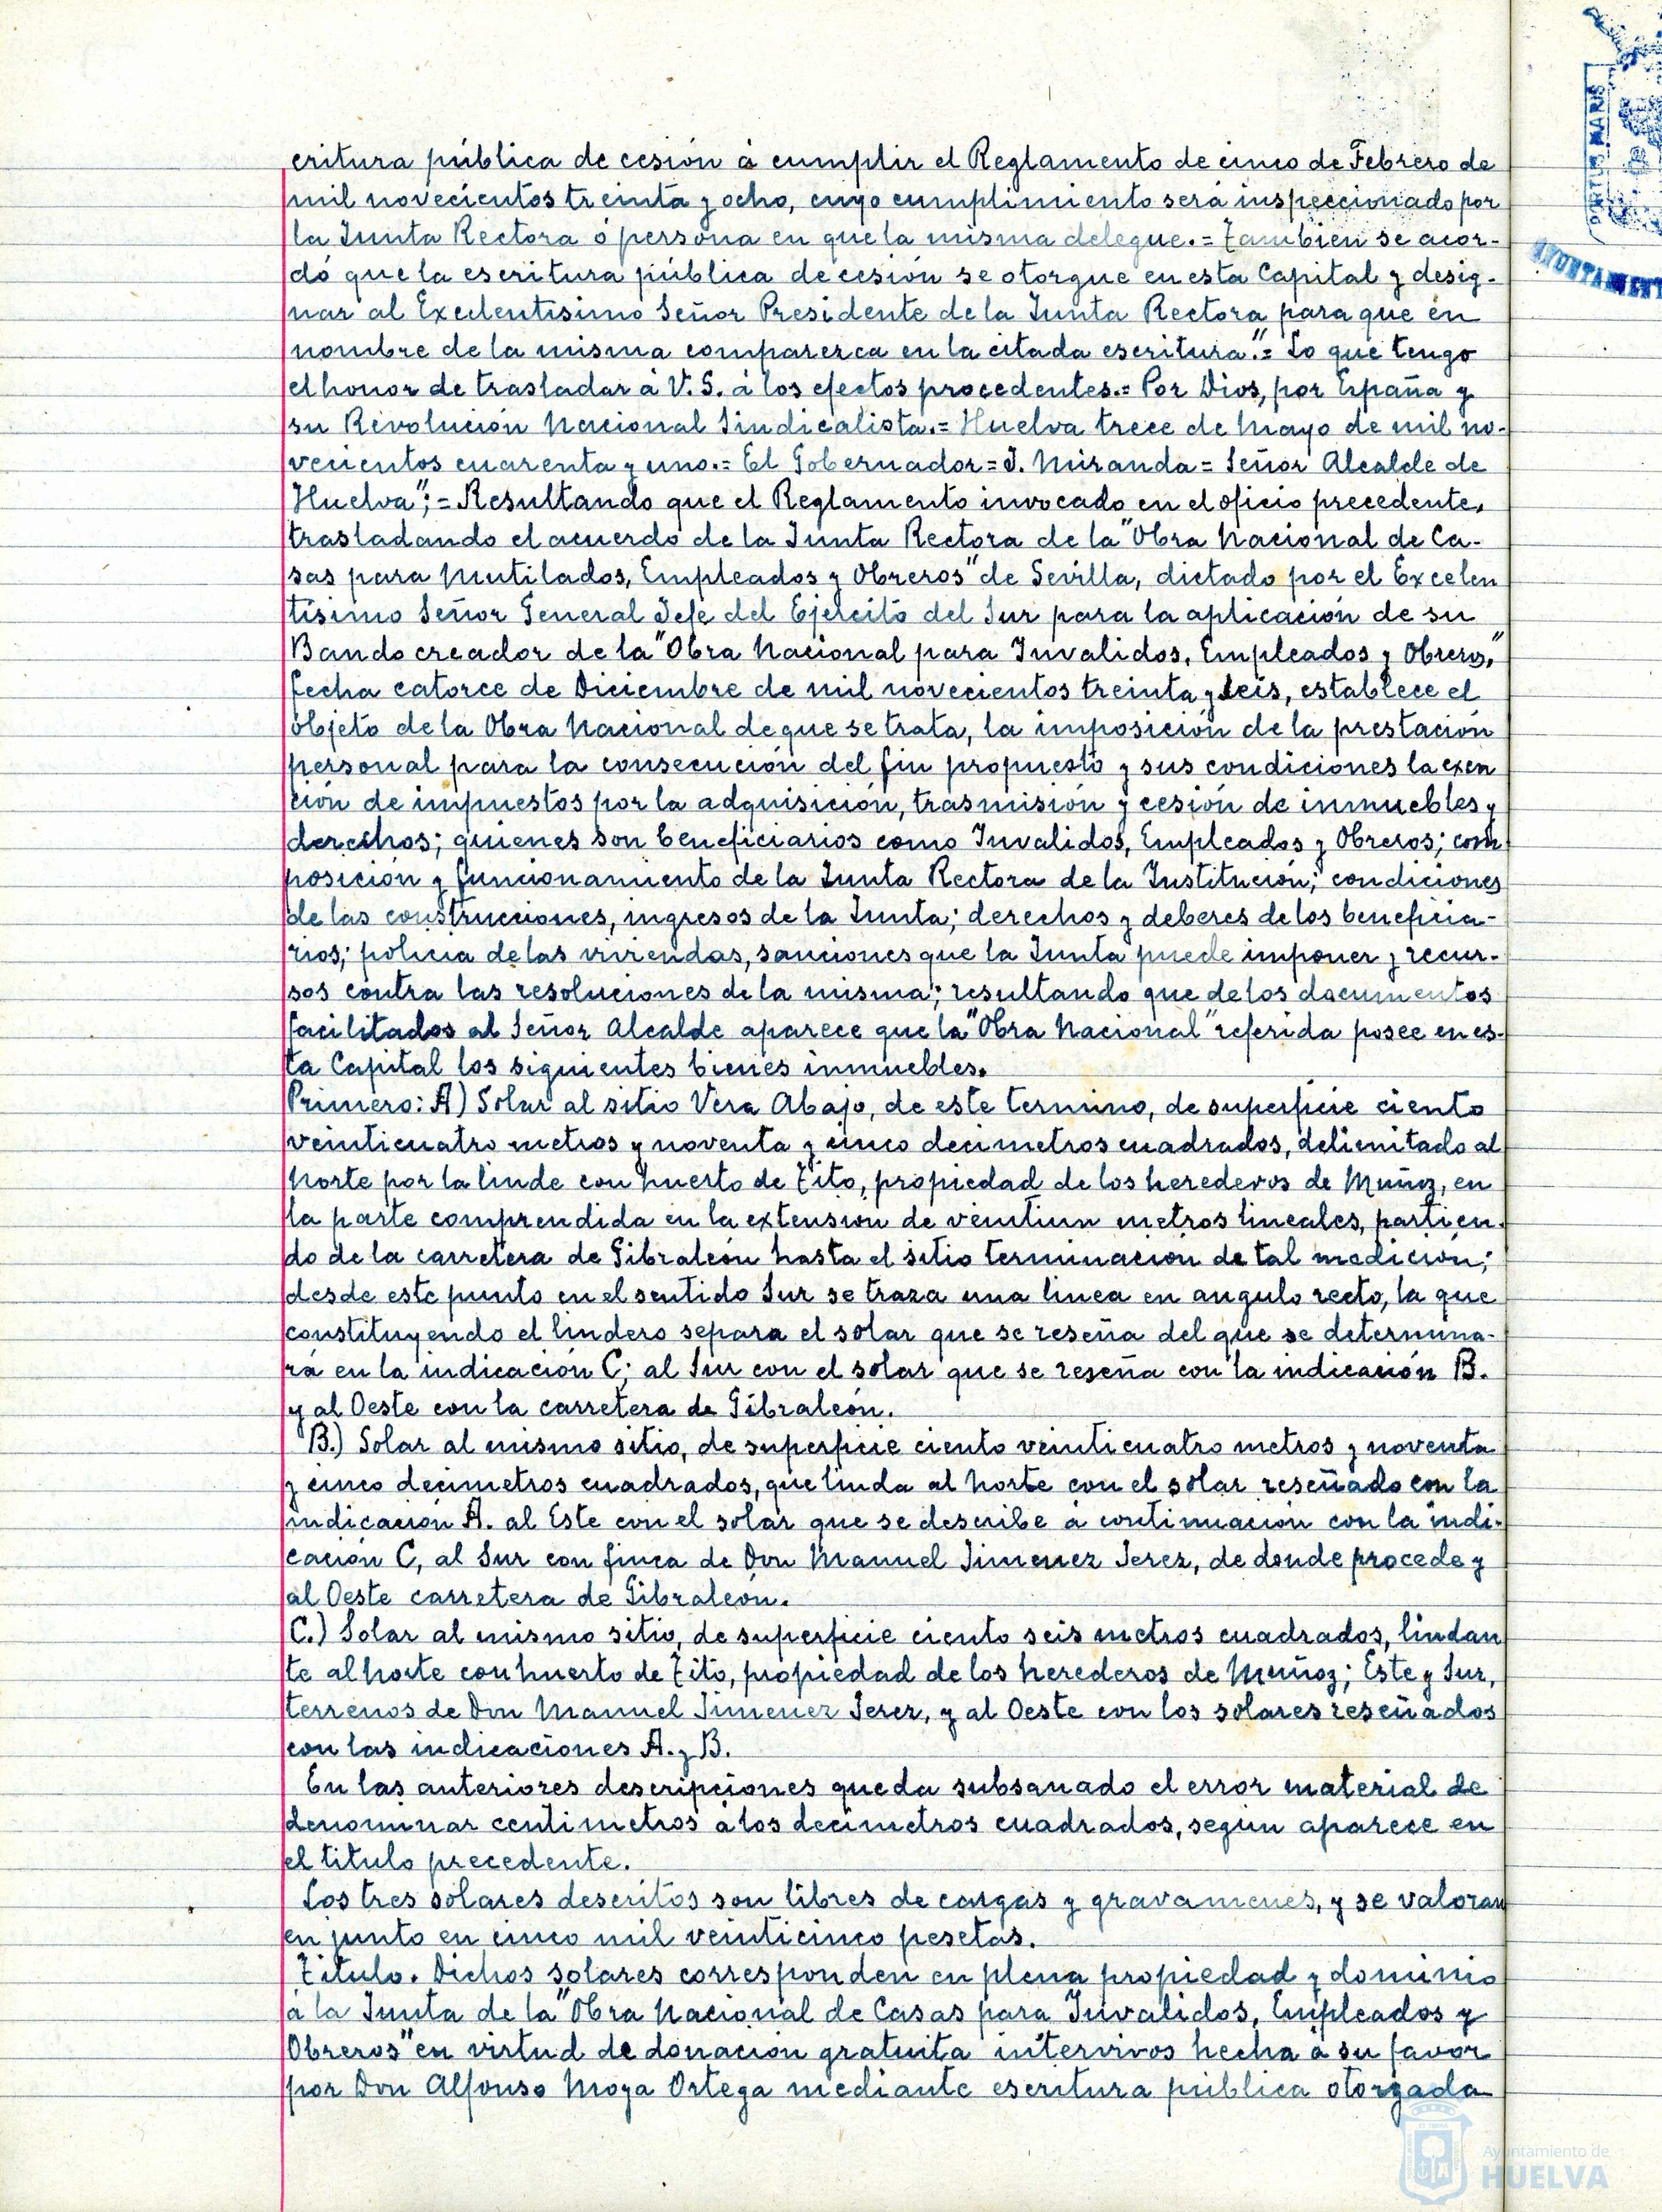 critura pública de cesión á cumplir el Reglamento de cinco de Febrero de
mil novecientos treinta y ocho, cuyo cumplimiento será inspeccionado por
la Junta Rectora ó persona en que la misma delegue.= Tambien se acor-
dó que la escritura pública de cesión se otorgue en esta Capital y desig-
nar al Excelentisimo Señor Presidente de la Junta Rectora para que en
nombre de la misma comparezca en la citada escritura."= Lo que tengo
el honor de trasladar á V. S. á los efectos procedentes.= Por Dios, por España y
su Revolución Nacional Sindicalista.= Huelva trece de Mayo de mil no-
vecientos cuarenta y uno.= El Gobernador= J. Miranda= Señor Alcalde de
Huelva";= Resultando que el Reglamento invocado en el oficio precedente,
trasladando el acuerdo de la Junta Rectora de la "Obra Nacional de Ca-
sas para Mutilados, Empleados y Obreros" de Sevilla, dictado por el Excelen
tísimo Señor General Jefe del Ejército del Sur para la aplicación de su
Bando creador de la "Obra Nacional para Invalidos, Empleados y Obreros,"
fecha catorce de Diciembre de mil novecientos treinta y seis, establece el
objeto de la Obra Nacional de que se trata, la imposición de la prestación
personal para la consecución del fin propuesto y sus condiciones la exen
ción de impuestos por la adquisición, trasmisión y cesión de inmuebles y
derechos; quienes son beneficiarios como Invalidos, Empleados y Obreros; com
posición y funcionamiento de la Junta Rectora de la Institución; condiciones
de las construcciones, ingresos de la Junta; derechos y deberes de los beneficia-
rios; policia de las viviendas, sanciones que la Junta puede imponer y recur-
sos contra las resoluciones de la misma; resultando que de los documentos
facilitados al Señor Alcalde aparece que la "Obra Nacional" referida posee en es-
ta Capital los siguientes bienes inmuebles.
Primero: A) Solar al sitio Vera Abajo, de este termino, de superficie ciento
veinticuatro metros y noventa y cinco decimetros cuadrados, delimitado al
Norte por la linde con huerto de Tito, propiedad de los herederos de Muñoz, en
la parte comprendida en la extension de veintiun metros lineales, partien-
do de la carretera de Gibraleón hasta el sitio terminación de tal medición;
desde este punto en el sentido Sur se traza una linea en angulo recto, la que
constituyendo el lindero separa el solar que se reseña del que se determina-
rá en la indicación C; al Sur con el solar que se reseña con la indicación B.
y al Oeste con la carretera de Gibraleón.
B.) Solar al mismo sitio, de superficie ciento veinticuatro metros y noventa
y cinco decimetros cuadrados, que linda al Norte con el solar reseñado con la
indicación A. al Este con el solar que se describe á continuación con la indi-
cación C, al Sur con finca de Don Manuel Jimenez Jerez, de donde procede y
al Oeste carretera de Gibraleón.
C.) Solar al mismo sitio, de superficie ciento seis metros cuadrados, lindan
te al Norte con huerto de Tito, propiedad de los herederos de Muñoz; Este y Sur,
terrenos de Don Manuel Jimenez Jerez, y al Oeste con los solares reseñados
con las indicaciones A. y B.
En las anteriores descripciones queda subsanado el error material de
denominar centimetros a los decimetros cuadrados, segun aparece en
el titulo precedente.
Los tres solares descritos son libres de cargas y gravamenes, y se valoran
en junto en cinco mil veinticinco pesetas.
Titulo. Dichos solares corresponden en plena propiedad y dominio
a la Junta de la "Obra Nacional de Casas para Invalidos, Empleados y
Obreros" en virtud de donación gratuita intervivos hecha á su favor
por Don Alfonso Moya Ortega mediante escritura pública otorgada
PORTUS MARIS
AYUNTAMIENT
Ayuntamiento de
HUELVA